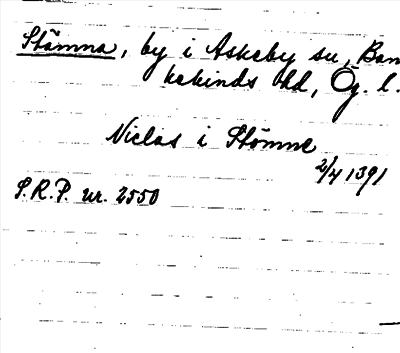 Stömna, by i Askeby sn, Ban
kekinds hd, Ög. l.
Niclas i Stömne
2/4 1391
S.R.P. nr. 2550